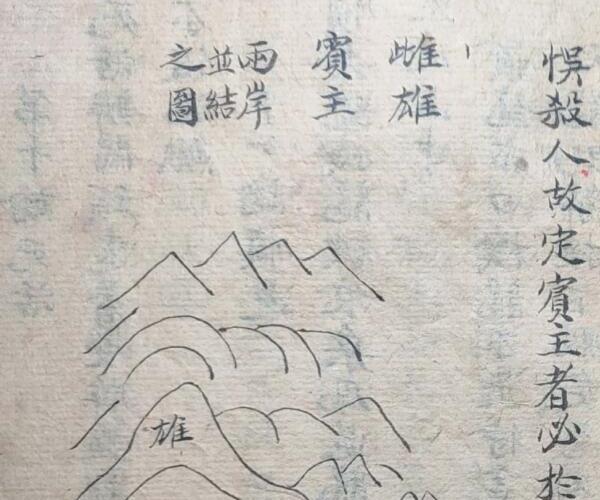 悞殺人故定賓主者必於
雌雄
賓主
兩岸
並結
之圖
雄